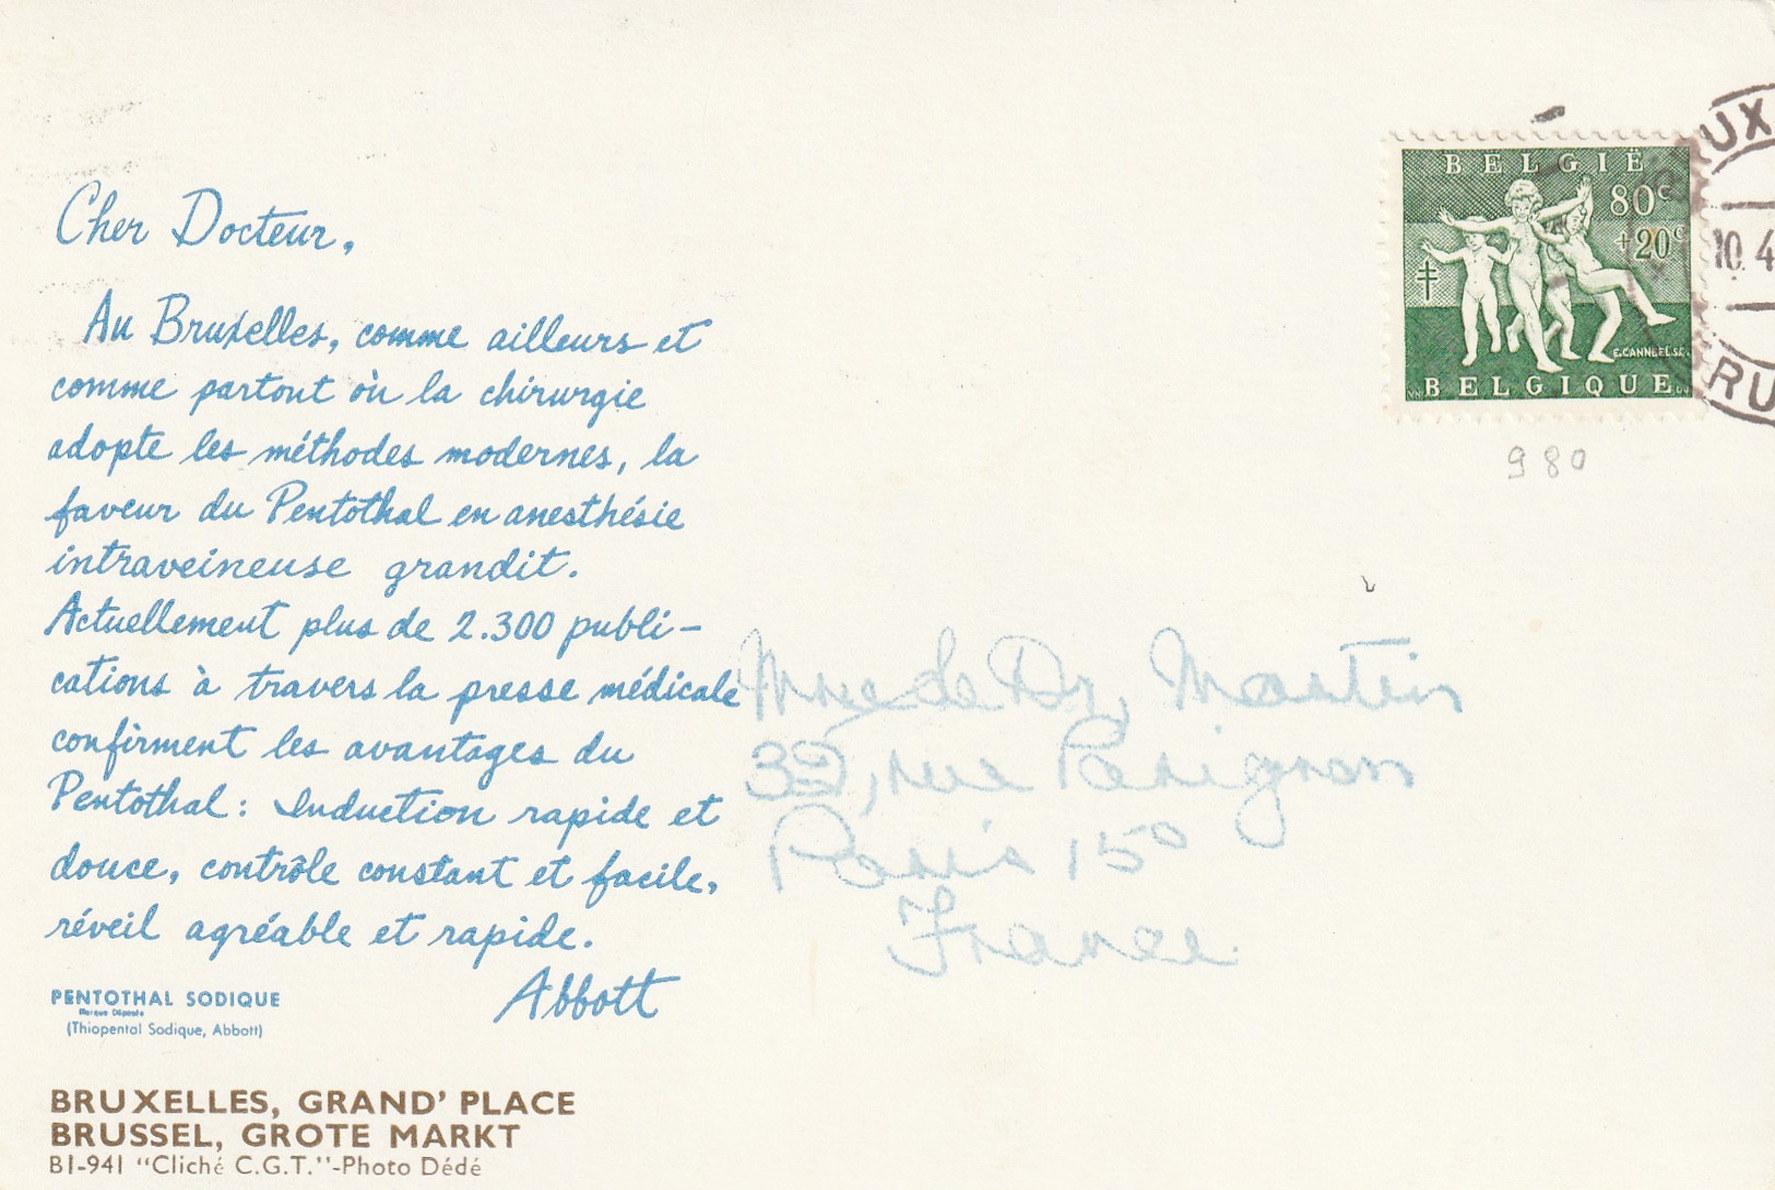 Cher Docteur,
Au Bruxelles, comme ailleurs et
comme partout où la chirurgie
adopte les méthodes modernes, la
faveur du Pentothal en anesthésie
intraveineuse grandit.
Actuellement plus de 2.300 publi-
cations à travers la presse médicale
confirment les avantages du
Pentothal : Induction rapide et
douce, contrôle constant et facile,
réveil agréable et rapide.
Abbott
PENTOTHAL SODIQUE
Marque Déposée
(Thiopental Sodique, Abbott)
BRUXELLES, GRAND' PLACE
BRUSSEL, GROTE MARKT
B1-941 "Cliché C.G.T."-Photo Dédé
BELGIË
80c
+20c
E.CANNEEL.SC.
BELGIQUE
UX
10.4
RU
980
Dr, Martin
32, rue
Paris 15º
France.